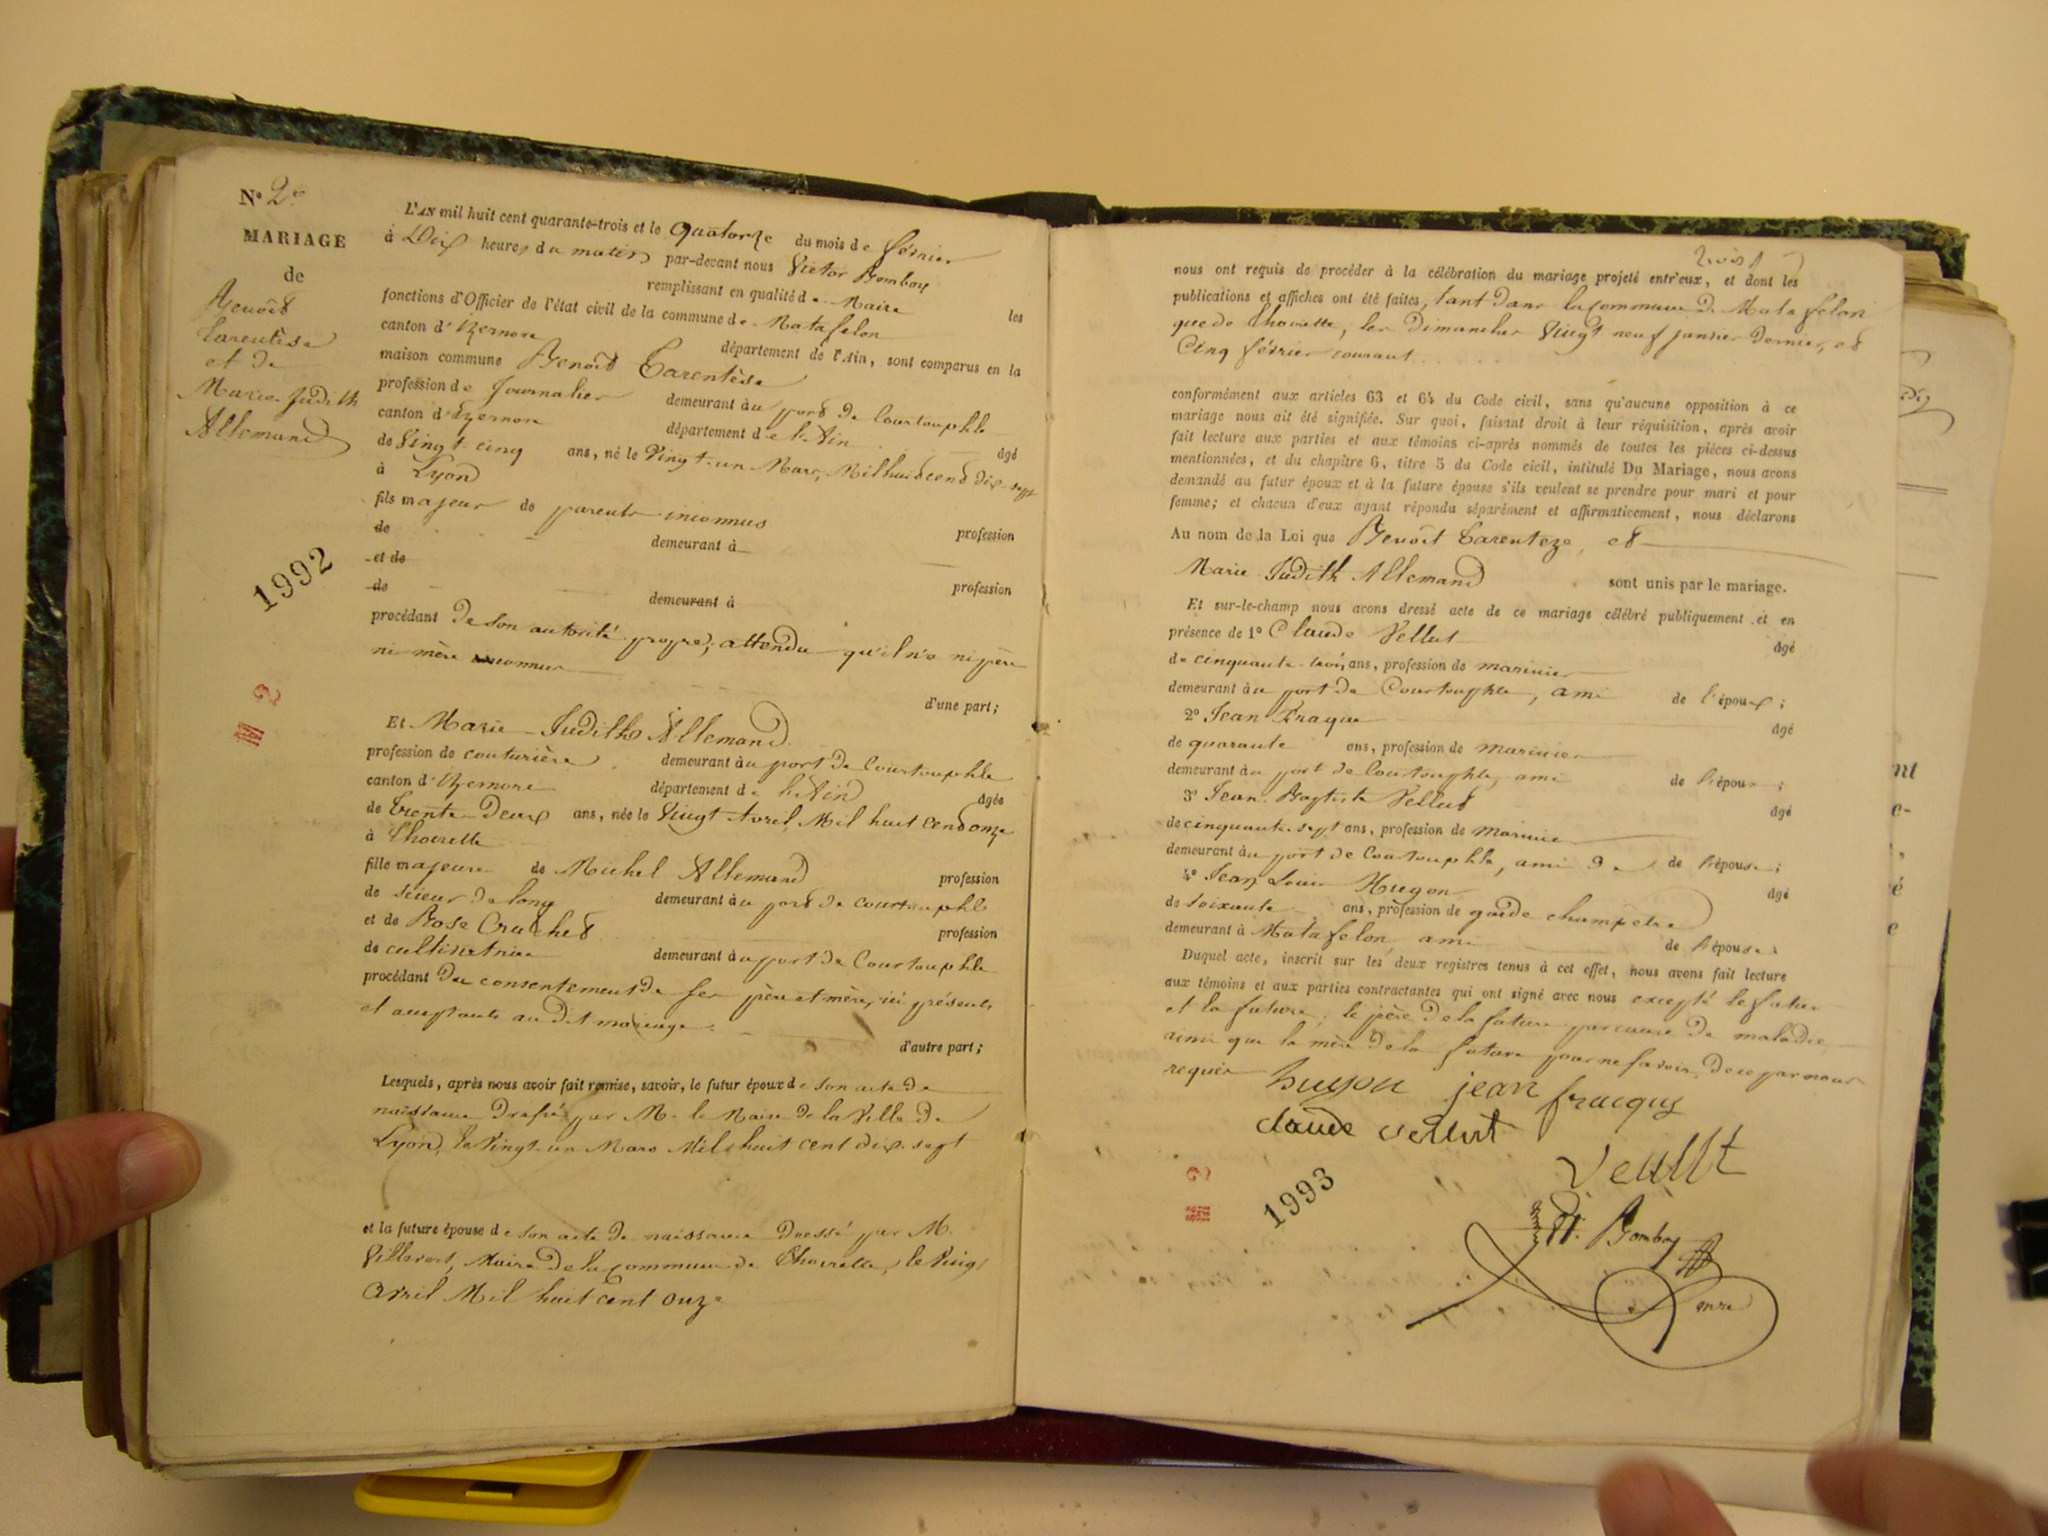 N° 2e
MARIAGE
de
Benoît
Tarentèse
et de
Marie Judith
Allemand
1992
L'AN mil huit cent quarante-trois et le quatorze du mois de février
à Dix heures du matin par-devant nous Victor Bomboy
remplissant en qualité de Maire les
fonctions d'Officier de l'état civil de la commune de Matafelon
canton d'Izernore département de l'Ain, sont comparus en la
maison commune Benoît Tarentèse
profession de Journalier demeurant au port de Courtouphle
canton d'Izernore département de l'Ain âgé
de Vingt-cinq ans, né le Vingt-un Mars, Mil huit cent dix-sept
à Lyon
fils majeur de parents inconnus
de demeurant à profession
et de
de demeurant à profession
procédant de son autorité propre, attendu qu'il n'a ni père
ni mère connus
d'une part;
Et Marie Judith Allemand
profession de couturière demeurant au port de Courtouphle
canton d'Izernore département de l'Ain âgée
de trente-Deux ans, née le Vingt Avril Mil huit cent onze
à Thoirette
fille majeure de Michel Allemand profession
de scieur de long demeurant au port de Courtouphle
et de Rose Crachet profession
de cultivatrice demeurant au port de Courtouphle
procédant du consentement de ses père et mère, ici présents
et acceptants au dit mariage.
d'autre part;
Lesquels, après nous avoir fait remise, savoir, le futur époux de son acte de
naissance dressé par M. le Maire de la Ville de
Lyon, le Vingt-un Mars Mil huit cent dix-sept
et la future épouse de son acte de naissance dressé par M.
Maire de la commune de Thoirette, le Vingt
Avril Mil huit cent onze
nous ont requis de procéder à la célébration du mariage projeté entr'eux, et dont les
publications et affiches ont été faites, tant dans la commune de Matafelon
que de Thoirette, les Dimanches Vingt neuf janvier dernier, et
Cinq février courant.
conformément aux articles 63 et 64 du Code civil, sans qu'aucune opposition à ce
mariage nous ait été signifiée. Sur quoi, faisant droit à leur réquisition, après avoir
fait lecture aux parties et aux témoins ci-après nommés de toutes les pièces ci-dessus
mentionnées, et du chapitre 6, titre 5 du Code civil, intitulé Du Mariage, nous avons
demandé au futur époux et à la future épouse s'ils veulent se prendre pour mari et pour
femme; et chacun d'eux ayant répondu séparément et affirmativement, nous déclarons
Au nom de la Loi que Benoît Tarenteze, et
Marie Judith Allemand sont unis par le mariage.
Et sur-le-champ nous avons dressé acte de ce mariage célébré publiquement et en
présence de 1° Claude Vellut âgé
de cinquante-trois ans, profession de marinier
demeurant au port de Courtouphle, ami de l'époux;
2° Jean Fraque âgé
de quarante ans, profession de marinier
demeurant au port de Courtouphle, ami de l'époux;
3° Jean-Baptiste Vellut âgé
de cinquante-sept ans, profession de Marinier
demeurant au port de Courtouphle, ami de de l'épouse;
4° Jean Louis Hugon âgé
de soixante ans, profession de garde champêtre
demeurant à Matafelon, ami de l'épouse.
Duquel acte, inscrit sur les deux registres tenus à cet effet, nous avons fait lecture
aux témoins et aux parties contractantes qui ont signé avec nous excepté le futur
et la future, le père de la future par cause de maladie,
ainsi que la mère de la future pour ne savoir, de ce par nous
requis
hugon jean fracque
claude vellut
Vellut
Vr. Bomboy
1993